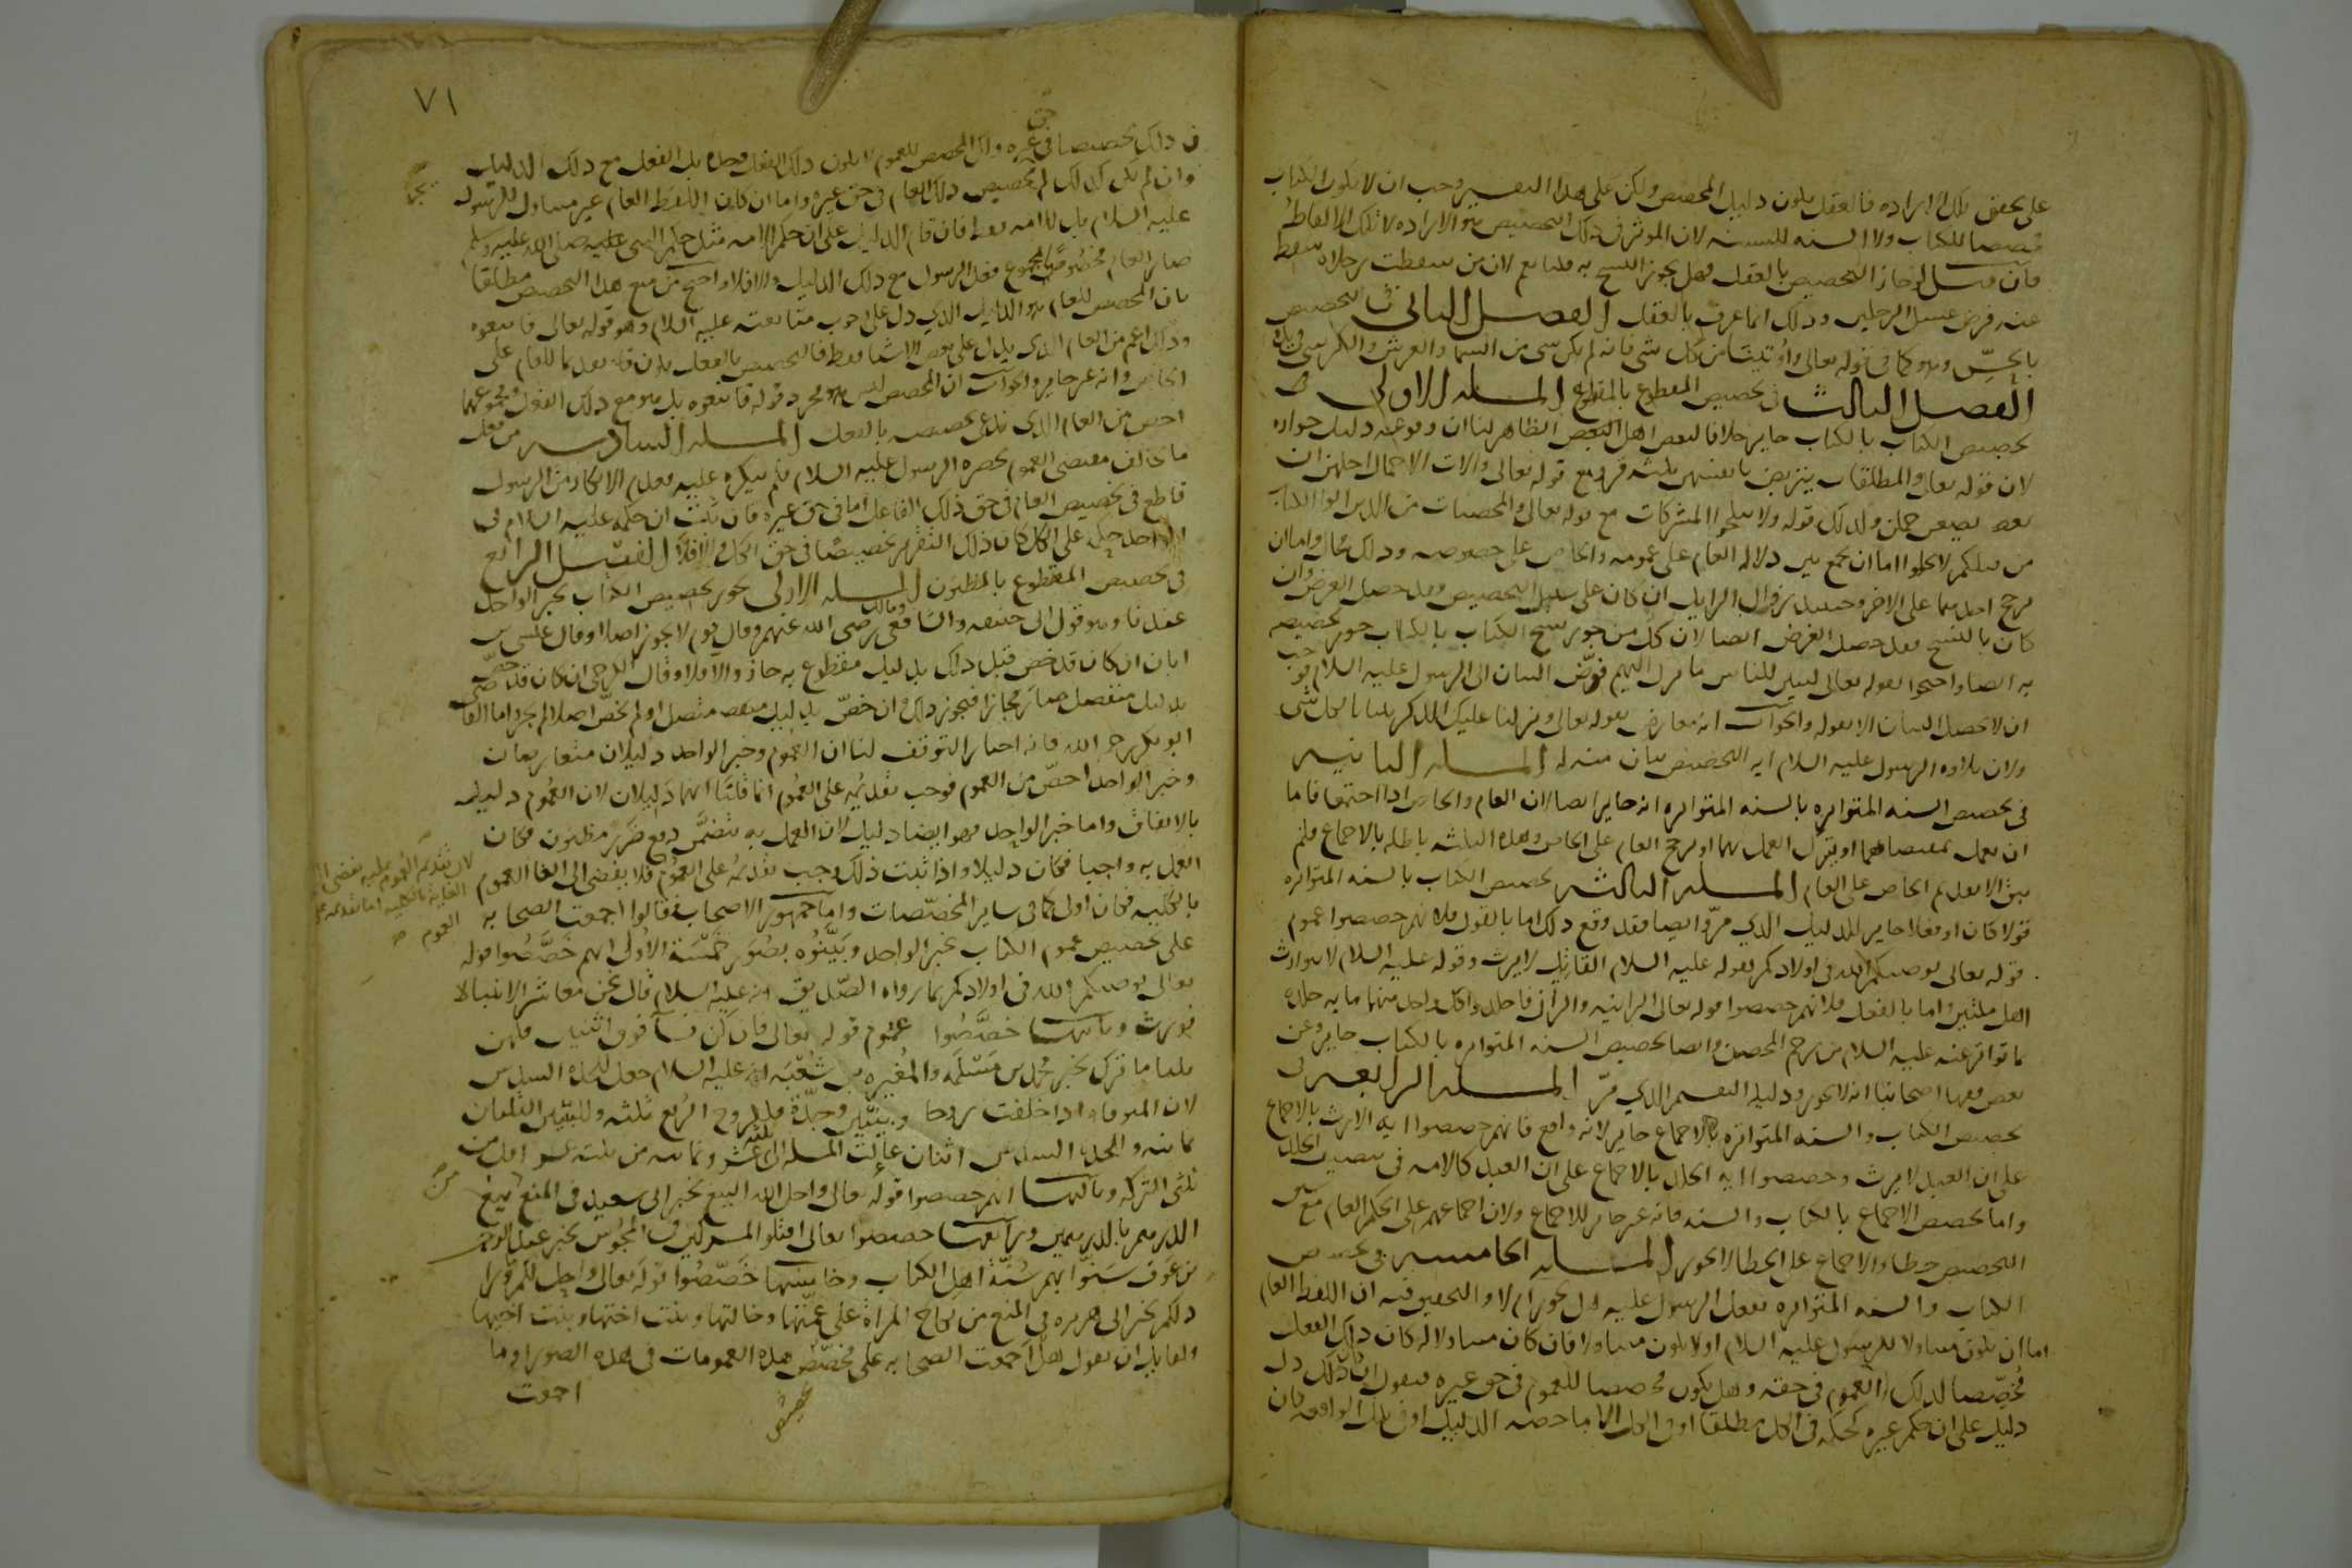 على تحقق تلك الارادة فالعقل يكون دليل المخصص ولكن على هذا التفسير وجب ان لا يكون الكتاب
مخصصا للكتاب ولا السنه للسنه لان الموثر في ذلك التخصيص هو الارادة لا تلك الالفاظ
فان قيل لو جاز التخصيص بالعقل فهل يجوز النسخ به قلنا نعم لان من سقطت رجلاه سقط
عنه فرض غسل الرجلين وذلك انما عرف بالعقل الفصل الثاني في التخصيص
بالحس وهو كما في قوله تعالى واوتيت من كل شى فانه لم يكن شى من السما والعرش والكرسى في يدها
الفصل الثالث في تخصيص المقطوع بالمقطوع المسله الاولى في
تخصيص الكتاب بالكتاب جايز خلافا لبعض اهل الظاهر لنا ان وقوعه دليل جوازه
لان قوله تعالى والمطلقات يتربصن بانفسهن ثلثه قرو مع قوله تعالى واولات الاحمال اجلهن ان
يضعن حملهن وكذلك قوله ولا تنكحوا المشركات مع قوله تعالى والمحصنات من الذين اوتوا الكتاب
من قبلكم لا يخلو اما ان يجمع بين دلاله العام على عمومه والخاص على خصوصه وذلك محال واما ان
يرجح احدهما على الاخر وحينيذ زوال الزايل ان كان على سبيل التخصيص فقد حصل الغرض وان
كان بالنسخ فقد حصل الغرض ايضا لان كل من جوز نسخ الكتاب بالكتاب جوز تخصيصه
به ايضا واحتجوا بقوله تعالى لتبين للناس ما نزل اليهم فوض البيان الى الرسول عليه السلام فوجب
ان لا يحصل البيان الا بقوله والجواب انه معارض بقوله تعالى ونزلنا عليك الذكر تبيانا لكل شى
ولان تلاوه الرسول عليه السلام ايه التخصيص بيان منه له المسله الثانيه
في تخصيص السنه المتواتره بالسنه المتواتره انه جايز ايضا لان العام والخاص اذا اجتمعا فاما
ان يعمل بمقتضاهما او يترك العمل بهما او يرجح العام على الخاص وهذه الثلثه باطله بالاجماع فلم
يبق الا تقديم الخاص على العام المسله الثالثه تخصيص الكتاب بالسنه المتواتره
قولا كان او فعلا جايز للدليل الذي مر وايضا فقد وقع ذلك اما بالقول فلانهم خصصوا عموم
قوله تعالى يوصيكم الله في اولادكم بقوله عليه السلام القاتل لا يرث وقوله عليه السلام لا يتوارث
اهل ملتين واما بالفعل فلانهم خصصوا قوله تعالى الزانيه والزاني فاجلدوا كل واحد منهما مايه جلده
بما تواتر عنه عليه السلام من رجم المحصن وايضا تخصيص السنه المتواتره بالكتاب جايز وعن
بعض فقها اصحابنا انه لا يجوز ودليله التقسيم الذي مر المسله الرابعه في
تخصيص الكتاب والسنه المتواتره بالاجماع جايز لانه واقع فانهم خصصوا ايه الارث بالاجماع
على ان العبد لا يرث وخصصوا ايه الجلد بالاجماع على ان العبد كالامه في تنصيف الجلد
واما تخصيص الاجماع بالكتاب والسنه فانه غير جايز للاجماع ولان اجماعهم على الحكم العام مع سبق
التخصيص خطا والاجماع على الخطا لا يجوز المسله الخامسه في تخصيص
الكتاب والسنه المتواتره بفعل الرسول عليه هل يجوز ام لا والتحقيق فيه ان اللفظ العام
اما ان يكون متناولا للرسول عليه السلام او لا يكون متناولا فان كان متناولا له كان ذلك الفعل
مخصصا لذلك العموم في حقه وهل يكون مخصصا للعموم في حق غيره فنقول ان كان ذلك دل
دليل على ان حكم غيره كحكمه في الكل مطلقا او في الكل الا ما خصه الدليل او في تلك الواقعه كان
٧١
ذلك تخصيصا في حق غيره ولكن المخصص للعموم لا يكون ذلك الفعل وحده بل الفعل مع ذلك الدليل
وان لم يكن كذلك لم يجز تخصيص ذلك العام في حق غيره واما ان كان اللفظ العام غير متناول للرسول
عليه السلام بل للامه فقط فان قام الدليل على ان حكم الامه مثل حكم النبى صلى الله عليه وسلم
صار العام مخصوصا بمجموع فعل الرسول مع ذلك الدليل والا فلا واحتج من منع هذا التخصيص مطلقا
بان المخصص للعام هو الدليل الذي دل على وجوب متابعته عليه السلام وهو قوله تعالى فاتبعوه
وذلك اعم من العام الذي يدل على بعض الاشيا فقط فالتخصيص بالفعل يكون تقديما للعام على
الخاص وانه غير جايز والجواب ان المخصص ليس هو مجرد قوله فاتبعوه بل هو مع ذلك الفعل ومجموعهما
اخص من العام الذي ندعى تخصيصه بالفعل المسله السادسه من فعل
ما يخالف مقتضى العموم بحضره الرسول عليه السلام فلم ينكره عليه فعدم الانكار من الرسول
قاطع في تخصيص العام في حق ذلك الفاعل اما في حق غيره فان ثبت ان حكمه عليه السلام في
الواحد حكمه على الكل كان ذلك التقرير تخصيصا في حق الكل والا فلا الفصل الرابع
في تخصيص المقطوع بالمظنون المسله الاولى يجوز تخصيص الكتاب بخبر الواحد
عندنا وهو قول ابى حنيفه والشافعى ومالك رضى الله عنهم وقال قوم لا يجوز اصلا وقال عيسى بن
ابان ان كان قد خص قبل ذلك بدليل مقطوع به جاز والا فلا وقال الكرخى ان كان قد خص
بدليل منفصل صار مجازا فيجوز ذلك وان خص بدليل متصل او لم يخص اصلا لم يجز واما القاضى
ابو بكر رحمه الله فانه اختار التوقف لنا ان العموم وخبر الواحد دليلان متعارضان
وخبر الواحد اخص من العموم فوجب تقديمه على العموم انما قلنا انهما دليلان لان العموم دليل
بالاتفاق واما خبر الواحد فهو ايضا دليل لان العمل به يتضمن دفع ضرر مظنون فكان
العمل به واجبا فكان دليلا واذا ثبت ذلك وجب تقديمه على العموم فلا يفضى الى الغا العموم
لان تقديم العموم عليه يفضى الى
الغايه بالكليه اما تقديمه على
العموم
بالكليه فكان اولى كما في ساير المخصصات واما جمهور الاصحاب فقالوا اجمعت الصحابه
على تخصيص عموم الكتاب بخبر الواحد وبينوه بصور خمسة الاولى انهم خصصوا قوله
تعالى يوصيكم الله في اولادكم بما رواه الصديق انه عليه السلام قال نحن معاشر الانبيا لا
نورث وثانيها خصصوا عموم قوله تعالى فان كن نسا فوق اثنتين فلهن
ثلثا ما ترك بخبر محمد بن مسلمه والمغيره بن شعبه انه عليه السلام جعل للجده السدس
لان المتوفاه اذا خلفت زوجا وبنتين وجدة فللزوج الربع ثلثه وللبنتين الثلثان
ثمانيه وللجده السدس اثنان عالت المسله الى ثلثه عشر وثمانيه من ثلثه عشر اقل من
ثلثى التركه وثالثها انهم خصصوا قوله تعالى واحل الله البيع بخبر ابى سعيد في المنع من بيع
الدرهم بالدرهمين ورابعها خصصوا قوله تعالى اقتلوا المشركين في المجوس بخبر عبد الرحمن
بن عوف سنوا بهم سنة اهل الكتاب وخامسها خصصوا قوله تعالى واحل لكم ما ورا
ذلكم بخبر ابى هريره في المنع من نكاح المراة على عمتها وخالتها وبنت اختها وبنت اخيها
ولقايل ان يقول هل اجمعت الصحابه على تخصيص هذه العمومات في هذه الصور او ما
اجمعت